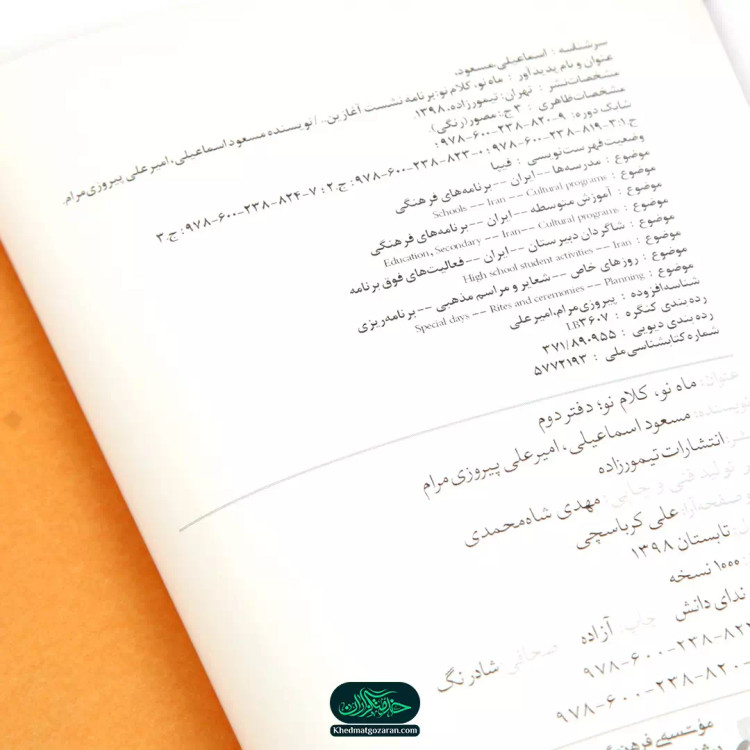 سرشناسه : اسماعیلی،مسعود،
عنوان و نام پدیدآور : ماه نو، کلام نو: برنامه نشست آغازین.../ نویسنده مسعود اسماعیلی، امیرعلی پیروزی‌مرام.
مشخصات نشر : تهران: تیمورزاده، ۱۳۹۸.
مشخصات ظاهری : ۳ ج: مصور(رنگی).
شابک دوره: ۹-۸۲۰-۲۳۸-۶۰۰-۹۷۸ ؛
ج.۱: ۳-۸۱۹-۲۳۸-۶۰۰-۹۷۸ ؛ ۰-۸۲۳-۲۳۸-۶۰۰-۹۷۸ : ج.۲ ؛ ۷-۸۲۴-۲۳۸-۶۰۰-۹۷۸ : ج.۳
وضعیت فهرست‌نویسی : فیپا
موضوع : مدرسه‌ها -- ایران -- برنامه‌های فرهنگی
موضوع : Schools -- Iran -- Cultural programs
موضوع : آموزش متوسطه -- ایران -- برنامه‌های فرهنگی
موضوع : Education, Secondary -- Iran -- Cultural programs
موضوع : شاگردان دبیرستان -- ایران -- فعالیت‌های فوق برنامه
موضوع : High school student activities -- Iran
موضوع : روزهای خاص -- شعایر و مراسم مذهبی -- برنامه‌ریزی
موضوع : Special days -- Rites and ceremonies -- Planning
شناسه افزوده : پیروزی‌مرام، امیرعلی
رده بندی کنگره : LB۳۶۰۷
رده بندی دیویی : ۳۷۱/۸۹۰۹۵۵
شماره کتابشناسی ملی : ۵۷۷۲۱۹۳
عنوان: ماه نو، کلام نو؛ دفتر دوم
نویسنده: مسعود اسماعیلی، امیرعلی پیروزی مرام
انتشارات تیمورزاده
تولید فنی و چاپی: مهدی شاه‌محمدی
صفحه‌آرا: علی کرباسچی
تابستان ۱۳۹۸
۱۰۰۰ نسخه
ندای دانش چاپ: آزاده صحافی: شادرنگ
۹۷۸-۶۰۰-۲۳۸-۸۲
۹۷۸-۶۰۰-۲۳۸-۸۲۰-
مؤسسه فرهنگی
خدمتگزاران
Khedmatgozaran.com